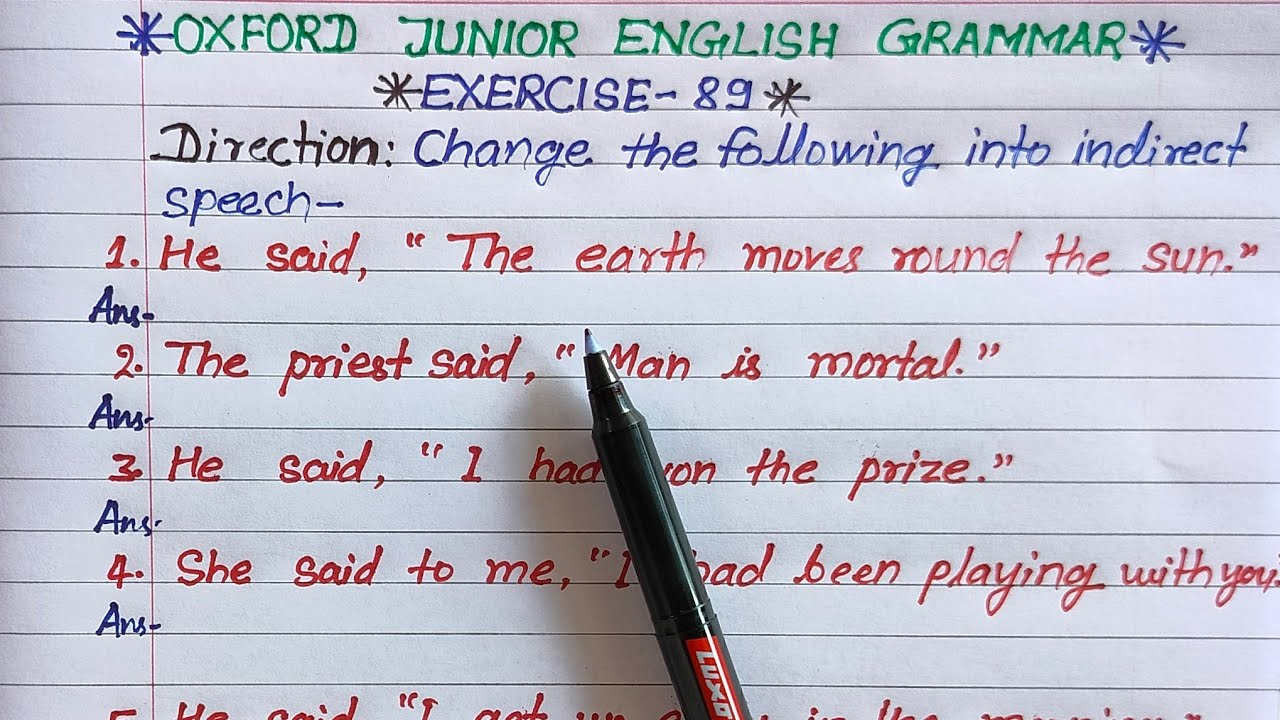 *OXFORD JUNIOR ENGLISH GRAMMAR*
*EXERCISE-89*
Direction: Change the following into indirect
speech-
1. He said, "The earth moves round the sun."
Ans-
2. The priest said, "Man is mortal."
Ans-
3. He said, "I had won the prize."
Ans-
4. She said to me, "I had been playing with you.
Ans-
5. He said "I got up in the morning
LUXO